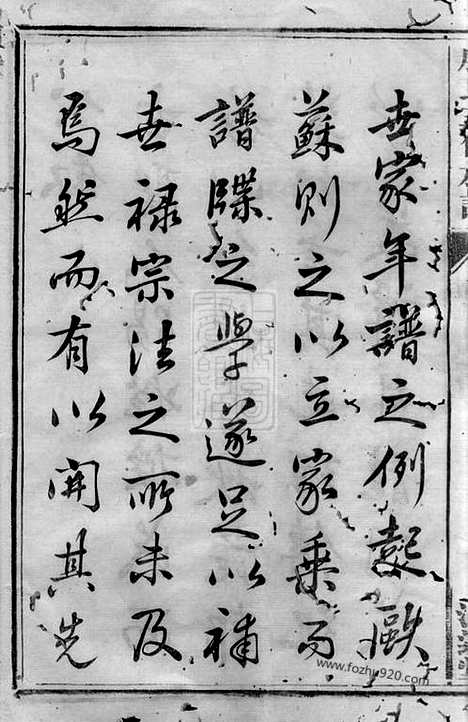 世家年譜之例起歐
蘇則之以立家乘而
譜牒之學遂足以補
世禄宗法之所未及
焉然而有以開其先
www.fozhu920.com